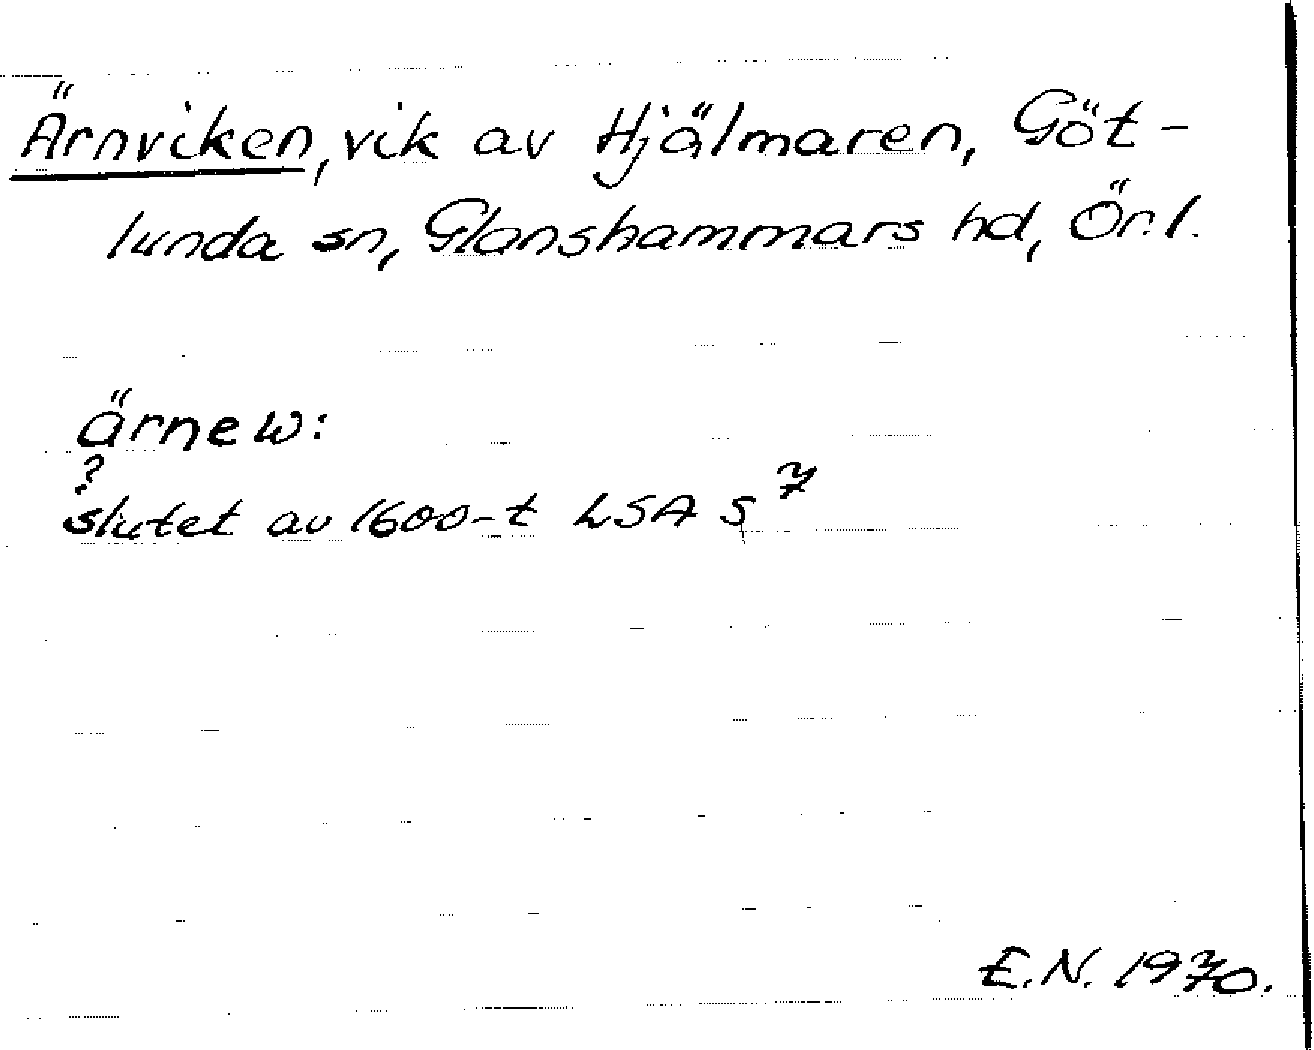 Ärnviken, vik av Hjälmaren, Göt-
lunda sn, Glanshammars hd, Ör.l.
ärnew:
?
slutet av 1600-t LSA S 7
E.N. 1970.